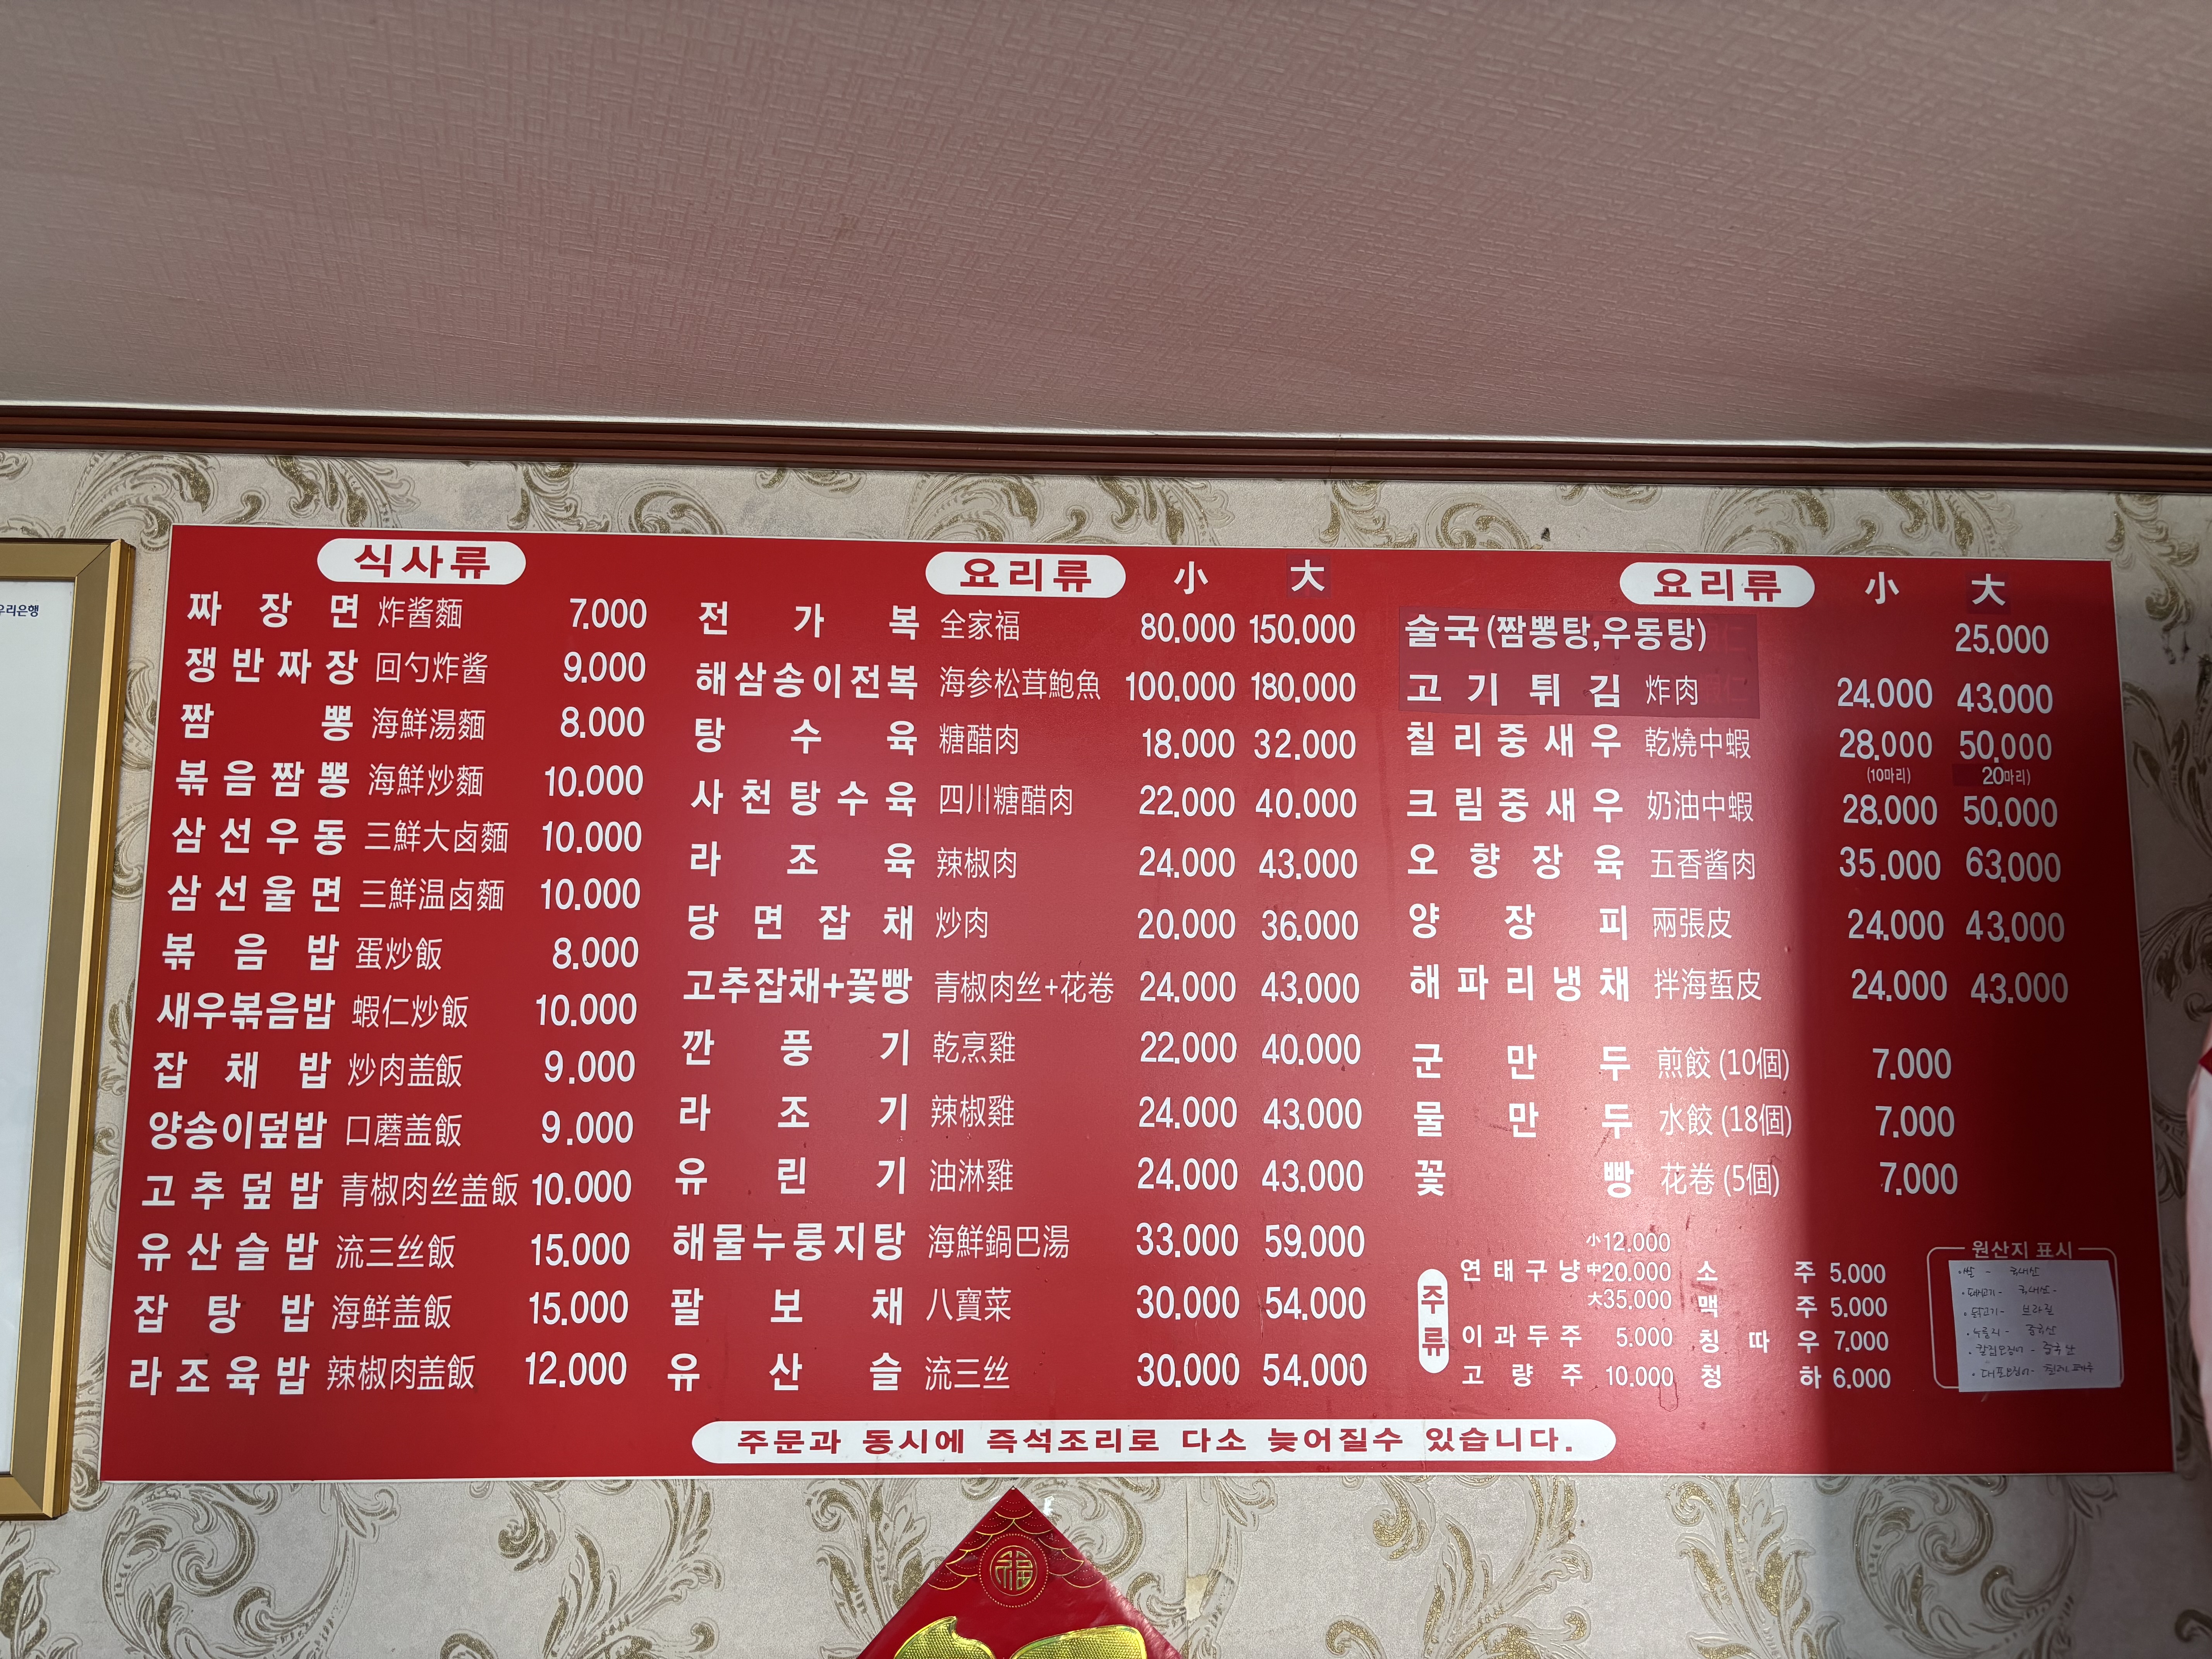 우리은행
식사류
짜장면 炸醬麵 7.000
쟁반짜장 回勺炸醬 9.000
짬뽕 海鮮湯麵 8.000
볶음짬뽕 海鮮炒麵 10.000
삼선우동 三鮮大卤麵 10.000
삼선울면 三鮮温卤麵 10.000
볶음밥 蛋炒飯 8.000
새우볶음밥 蝦仁炒飯 10.000
잡채밥 炒肉盖飯 9.000
양송이덮밥 口蘑盖飯 9.000
고추덮밥 青椒肉丝盖飯 10.000
유산슬밥 流三丝飯 15.000
잡탕밥 海鲜盖飯 15.000
라조육밥 辣椒肉盖飯 12.000
요리류 小 大
전가복 全家福 80.000 150.000
해삼송이전복 海参松茸鮑魚 100.000 180.000
탕수육 糖醋肉 18.000 32.000
사천탕수육 四川糖醋肉 22.000 40.000
라조육 辣椒肉 24.000 43.000
당면잡채 炒肉 20.000 36.000
고추잡채+꽃빵 青椒肉丝+花卷 24.000 43.000
깐풍기 乾烹雞 22.000 40.000
라조기 辣椒雞 24.000 43.000
유린기 油淋雞 24.000 43.000
해물누룽지탕 海鮮鍋巴湯 33.000 59.000
팔보채 八寶菜 30.000 54.000
유산슬 流三丝 30.000 54.000
요리류 小 大
술국(짬뽕탕,우동탕) 25.000
고기튀김 炸肉 24.000 43.000
칠리중새우 乾燒中蝦 28.000 50.000
(10마리) 20마리)
크림중새우 奶油中蝦 28.000 50.000
오향장육 五香酱肉 35.000 63.000
양장피 兩張皮 24.000 43.000
해파리냉채 拌海蜇皮 24.000 43.000
군만두 煎餃 (10個) 7.000
물만두 水餃 (18個) 7.000
꽃빵 花卷 (5個) 7.000
주류
小12.000
연태구냥 中20.000
大35.000
이과두주 5.000
고량주 10.000
소주 5.000
맥주 5.000
칭따우 7.000
청하 6.000
원산지 표시
·쌀 - 국내산
·돼지고기 - 국내산
·닭고기 - 브라질
·누룽지 - 중국산
·갑오징어 - 중국산
주문과 동시에 즉석조리로 다소 늦어질수 있습니다.
福